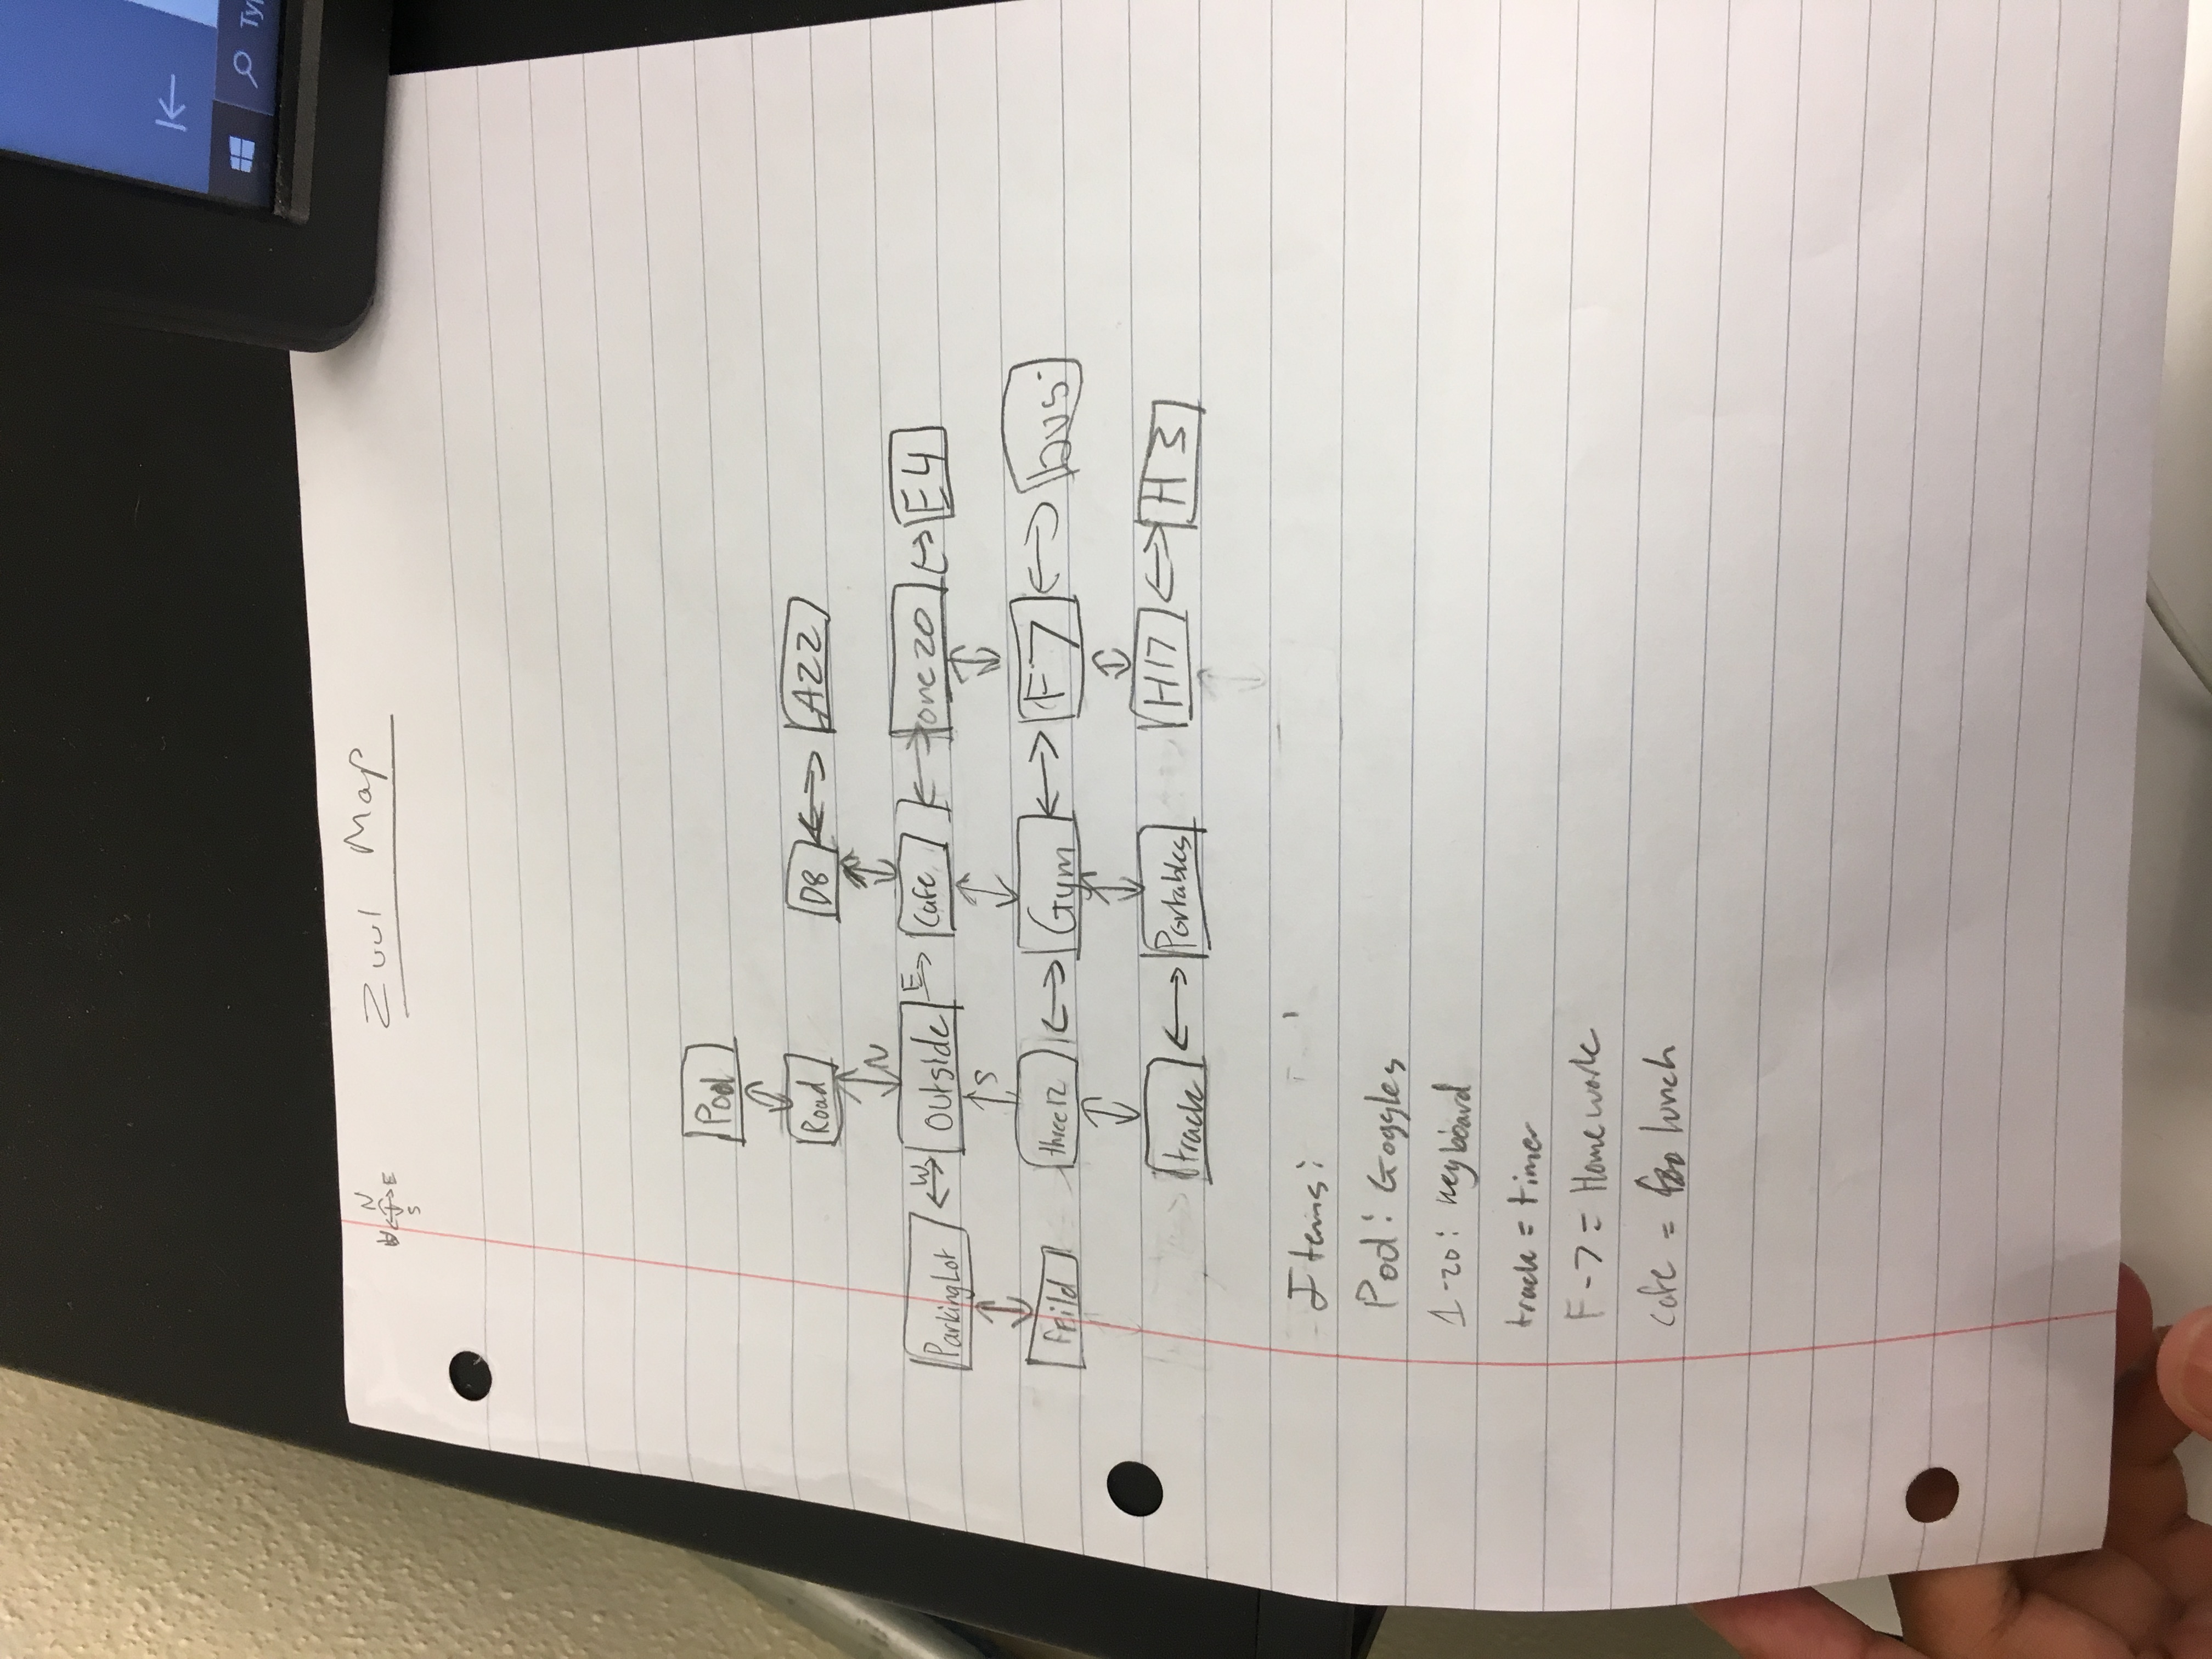 Zuul Map
N
W E
S
Pool
Road D8 A22
N
ParkingLot W Outside E Cafe one20 E4
S
Feild three12 Gym F7 bus
track Portables H17 H3
Items:
Pool: Goggles
1-20: keyboard
track = timer
F-7 = Homework
cafe = lunch